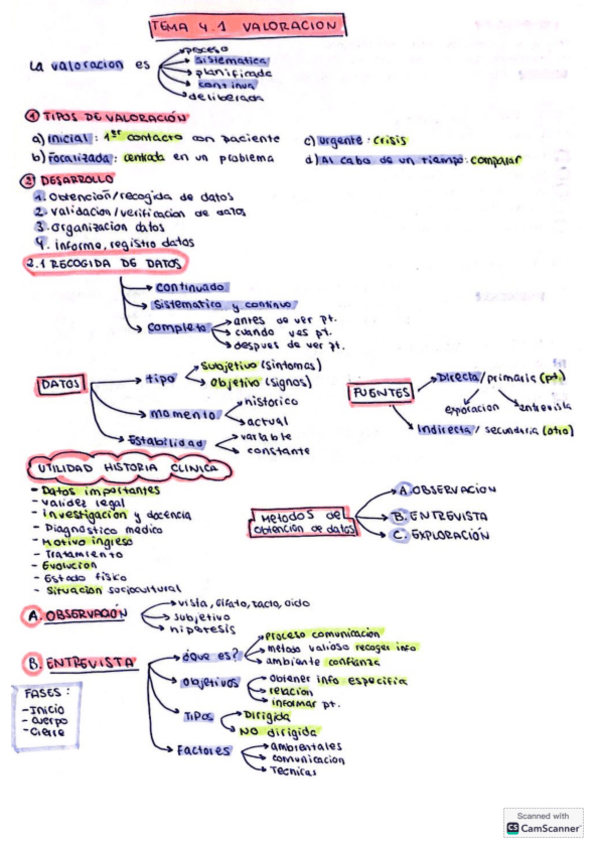 TEMA 4.1 VALORACION
La valoracion es
proceso
sistematica
planificada
continua
deliberada
1 TIPOS DE VALORACIÓN
a) inicial: 1er contacto con paciente
c) urgente: crisis
b) Focalizada: centrada en un problema
d) Al cabo de un tiempo: comparar
2 DESARROLLO
1. Obtención/recogida de datos
2. validacion/verificacion de datos
3. organizacion datos
4. informe, registro datos
2.1 RECOGIDA DE DATOS
continuado
Sistematico y continuo
completo
antes de ver pt.
cuando ves pt.
despues de ver pt.
DATOS
tipo
subjetivo (sintomas)
objetivo (signos)
momento
historico
actual
Estabilidad
variable
constante
FUENTES
Directa/primaria (pt)
exporacion
entrevista
Indirecta/secundaria (otro)
UTILIDAD HISTORIA CLINICA
- Datos importantes
- validez legal
- investigación y docencia
- Diagnostico medico
- Motivo ingreso
- Tratamiento
- Evolucion
- Estado fisico
- Situacion sociocultural
Metodos de
obtencion de datos
A. OBSERVACION
B. ENTREVISTA
C. EXPLORACIÓN
A. OBSERVACIÓN
vista, olfato, tacto, oido
subjetivo
hipotesis
B. ENTREVISTA
¿Que es?
Proceso comunicación
metodo valioso recoger info
ambiente confianza
Objetivos
obtener info especifica
relacion
informar pt.
Tipos
Dirigida
NO dirigida
Factores
ambientales
comunicacion
Tecnicas
FASES:
- Inicio
- Cuerpo
- Cierre
Scanned with
CS CamScanner